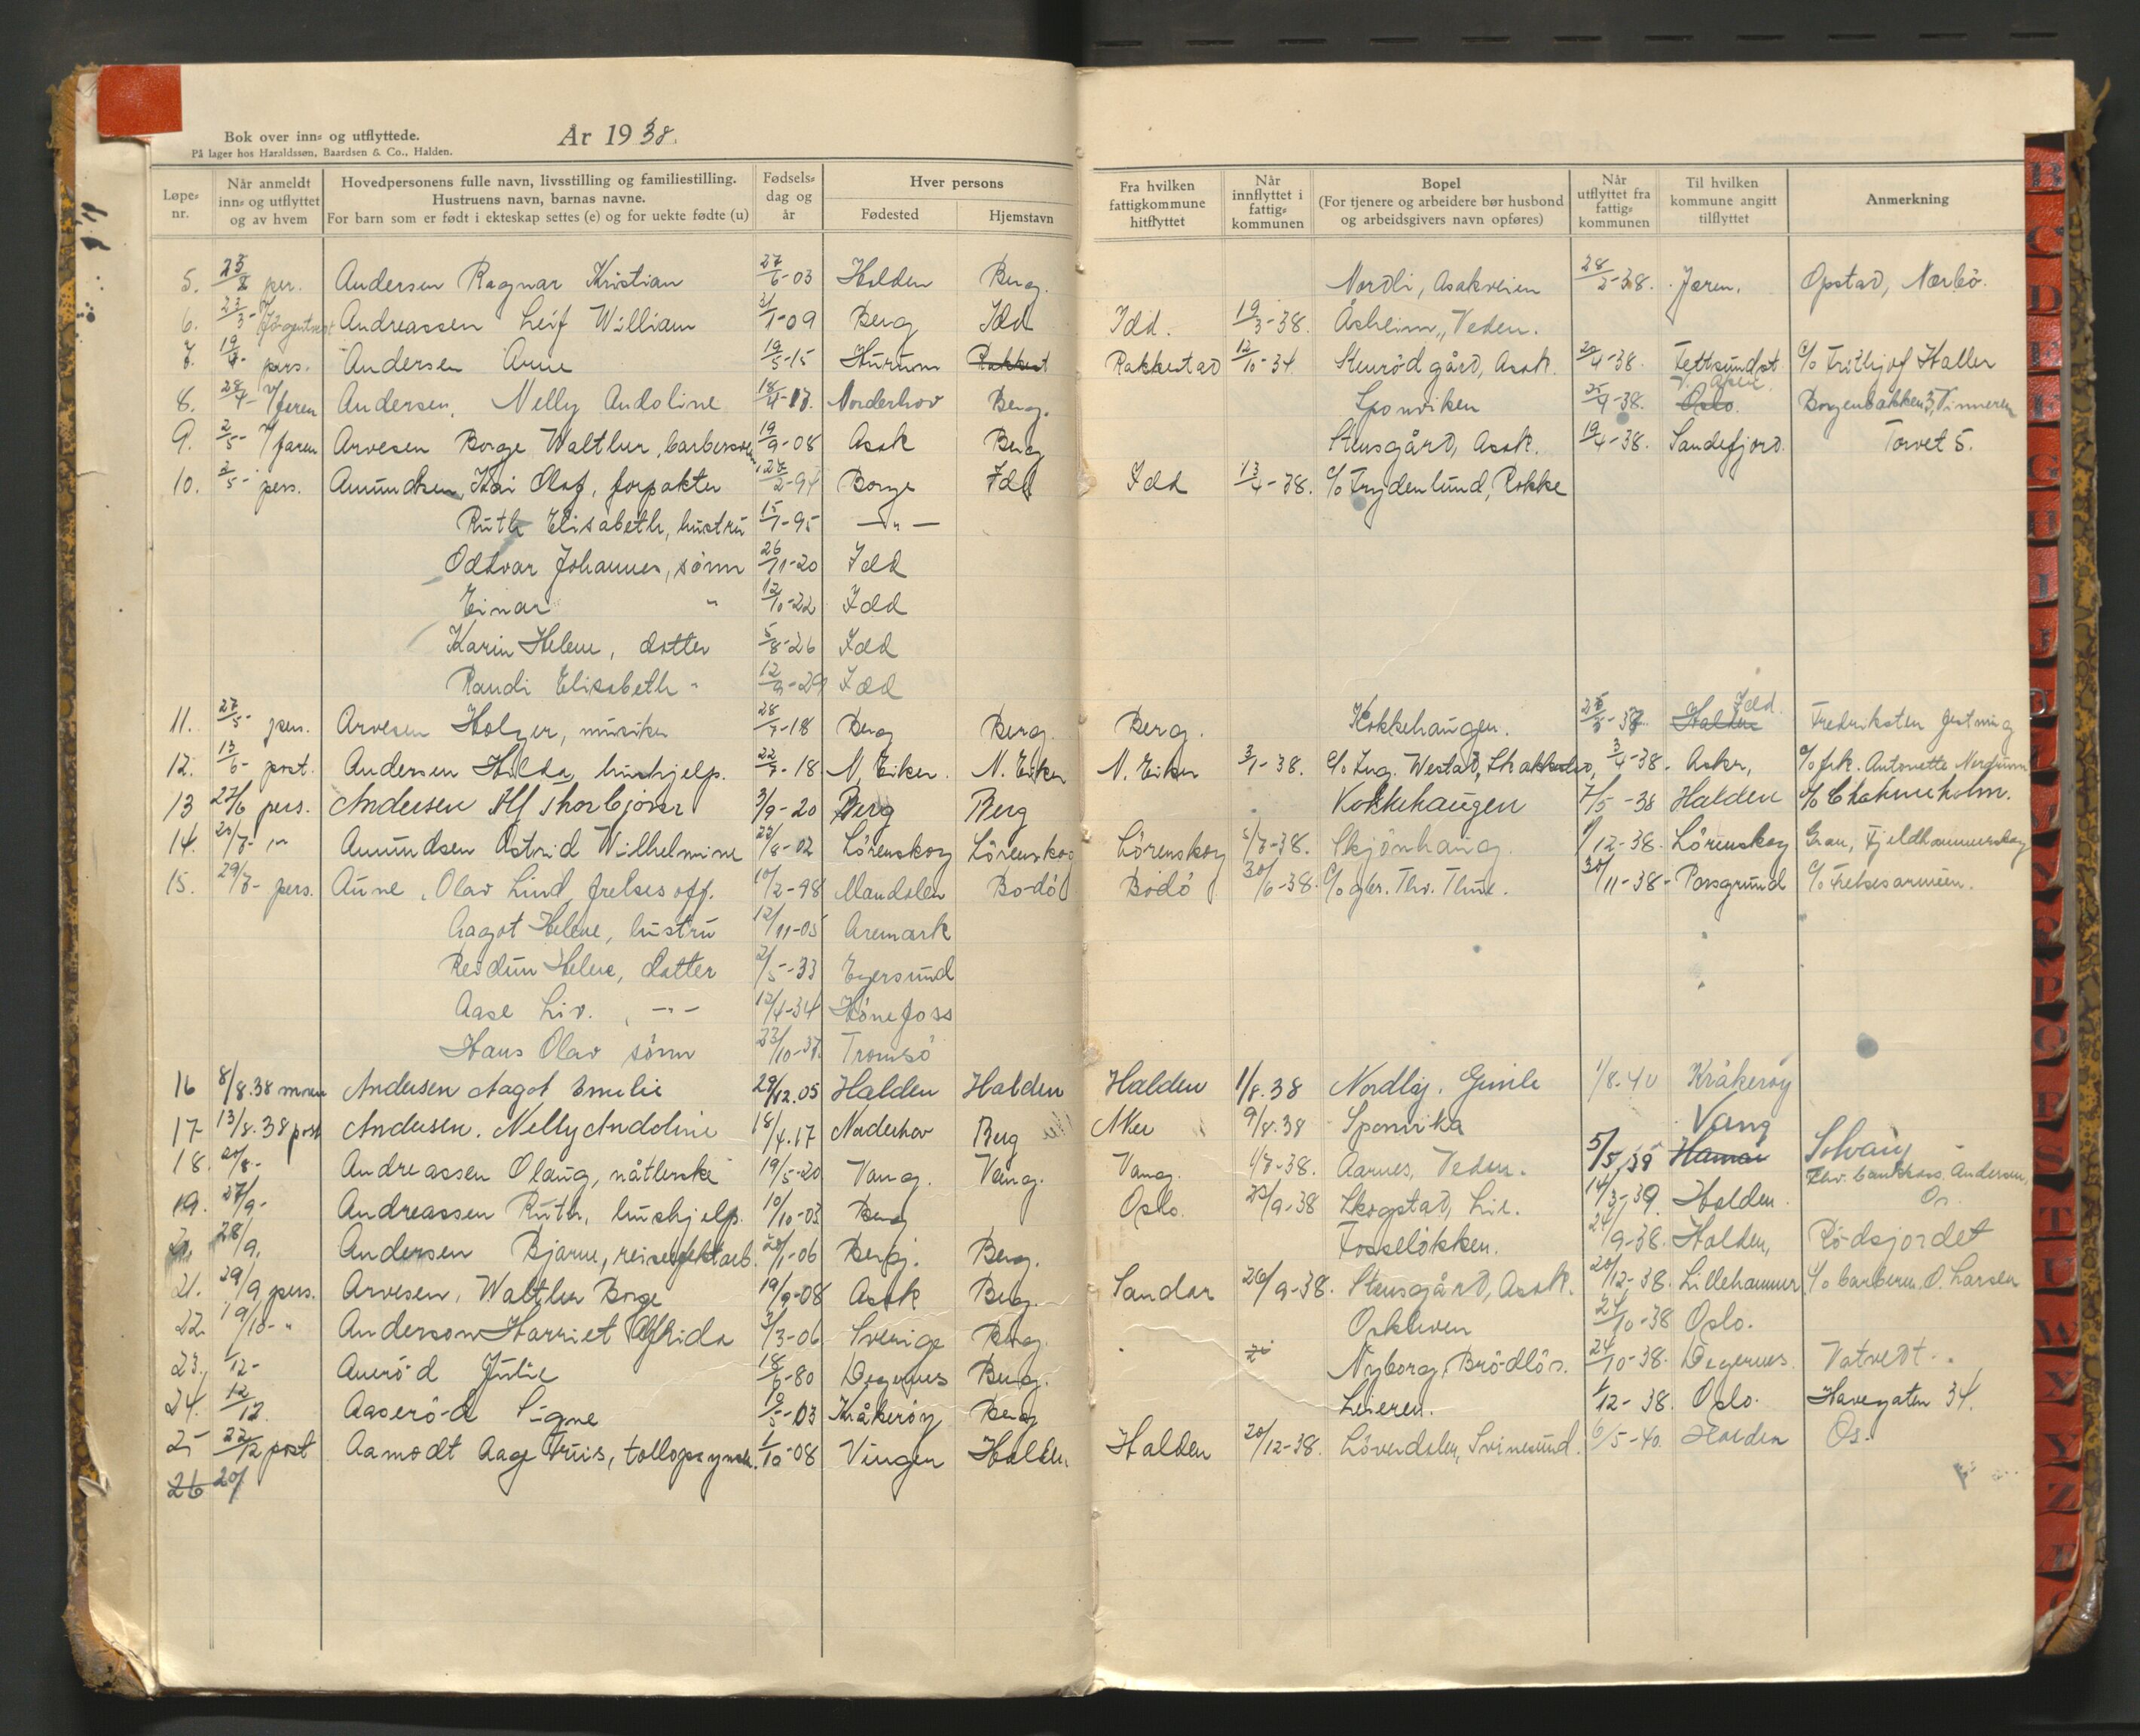 Bok over inn- og utflyttede.
På lager hos Haraldssøn, Baardsen & Co., Halden.
År 1938.
Løpe-nr. Når anmeldt inn- og utflyttet og av hvem Hovedpersonens fulle navn, livsstilling og familiestilling. Hustruens navn, barnas navne. For barn som er født i ekteskap settes (e) og for uekte fødte (u) Fødsels-dag og år Hver persons Fødested Hjemstavn Fra hvilken fattigkommune hitflyttet Når innflyttet i fattig-kommunen Bopel (For tjenere og arbeidere bør husbond og arbeidsgivers navn opføres) Når utflyttet fra fattig-kommunen Til hvilken kommune angitt tilflyttet Anmerkning
5. per. Andersen Ragnar Kristian 27/6-03 Halden Berg. Nordli, Asakveien 28/2-38. Jæren. Opstad, Nærbö.
6. 23/3- Andreassen Leif William 2/1-09 Berg Idd Idd. 19/3-38. Åsheim, Veden.
7. 19/4- pers. Andersen Arne 19/5-15 Hurum Rakkest Rakkestad 12/10-34. Stenröd gård, Asak. 20/4-38. Fetsund st. c/o Frithjof Haller
8. 28/4- Andersen, Nelly Andoline 18/4-17. Norderhov Berg. Sponviken 25/4-38. V. Aker Oslo. Borgenbakken 3, Vinneren
9. 2/5- Arvesen Borge Walthur, barbersvenn 19/9-08 Asak Berg Stensgård, Asak. 19/4-38. Sandefjord. Torvet 5.
10. 2/5- pers. Amundsen, Kai Olaf, forpakter 27/2-94 Borge Idd Idd 13/4-38. c/o Frydenlund, Rokke
Ruth Elisabeth, hustru 15/1-95 —"—
Oddvar Johannes, sönn 26/11-20 Idd
Einar " 12/10-22 Idd
Karin Helene, datter 5/8-26 Idd
Randi Elisabeth " 12/9-29 Idd
11. 27/5- pers. Arvesen Holger, musiker 28/7-18 Berg Berg. Berg. Kokkehaugen. Idd. Halden Fredriksten festning
12. 13/6- post. Andersen Hilda, hushjelp. 22/7-18 N. Eiker. N. Eiker N. Eiker 3/1-38. c/o Ing. Westad, 3/4-38. Asker, c/o frk. Antonette
13 27/6 pers. Andersen Alf Thorbjörn 3/9-20 Berg Berg Kokkehaugen 7/5-38 Halden
14. 20/7- " Amundsen Astrid Wilhelmine 22/8-02 Lörenskog Lörenskog Lörenskog 5/7-38. Skjönhaug. 1/12-38. Lörenskog Gran,
15. 29/7- pers. Aune, Olav Lind, frelsesoff. 10/2-98 Mandalen Bodö Bodö 30/6-38. c/o gbr. Thv. Thue. 30/11-38- Porsgrund c/o Frelsesarmeen.
Aagot Helene, hustru 12/11-05 Aremark
Reidun Helene, datter 2/5-33 Egersund
Aase Liv. —"— 12/4-34 Hönefoss
Hans Olav sönn 23/10-37. Tromsö
16 8/8.38 Andersen Aagot Emilie 29/12.05 Halden Halden Halden 1/8.38 Nordlig. Gimle 1/8.40 Kråkeröy
17 13/8.38 post Andersen. Nelly Andoline 18/4.17 Norderhov Berg Aker 9/8.38 Sponvika
18. 20/8- Andreassen Olaug, nåtlerske 19/5-20 Vang. Vang. Vang. 1/7-38. Aarnes, Veden. 5/5.39 Vang Hamar Solvang
19. 27/9- Andreassen Ruth, hushjelp. 10/10-03 Berg Oslo. 25/9-38 Skogstad, Lie. 14/3-39. Halden. Andersen, Os.
28/9. Andersen Bjarne, reiseeffektarb. 20/1-06 Berg. Berg. Fosselökken. 24/9-38. Halden, Rödsjordet
21. 29/9 pers. Arvesen, Walthur Borge 19/9-08 Asak Berg. Sandar 26/9-38. Stensgård, Asak. 20/12-38. Lillehammer c/o barberm. O. Larsen
22. 19/10- " Anderson Harriet Alfhida 3/3-06 Sverige Berg. Orkleven 24/10-38 Oslo.
23. 1/12- Aueröd Julie 18/6-80 Degernes Berg. Nyborg, Brödlös. 24/10-38. Degernes. Vatvedt.
24. 12/12. Aaseröd Signe 19/5-03 Kråkeröy Berg Leieren. 1/12-38. Oslo. Havegaten 34.
25 22/12 post Aamodt Aage Friis, tollopsynsm. 1/10-08 Vinger Halden Halden 20/12-38. Lövendalen, Svinesund. 6/5-40. Halden Os.
26 20/